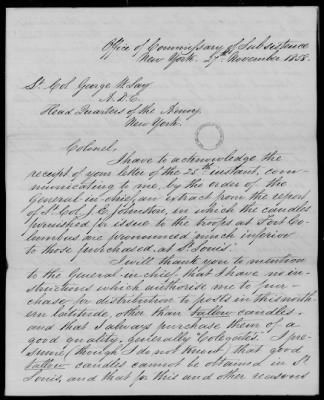 Office of Commissary of Subsistence
New York. 27th November 1858.
Lt. Col. George W. Lay
A. D. C.
Head Quarters of the Army.
New York.
Colonel,
I have to acknowledge the
receipt of your letter of the 25th instant, com-
municating to me, by the order of the
General in chief, an extract from the report
of Lt. Col. J. E. Johnston, in which the candles
furnished for issue to the troops at Fort Co-
lumbus are pronounced much inferior
to those purchased at St. Louis.
I will thank you to mention
to the General-in-chief, that I have no in-
structions which authorise me to pur-
chase, for distribution to posts in this north-
ern latitude, other than tallow candles-
and that I always purchase them of a
good quality- Generally "Colegates". I pre-
sume (though I do not know) that good
tallow candles cannot be obtained in St.
Louis, and that for this and other reasons